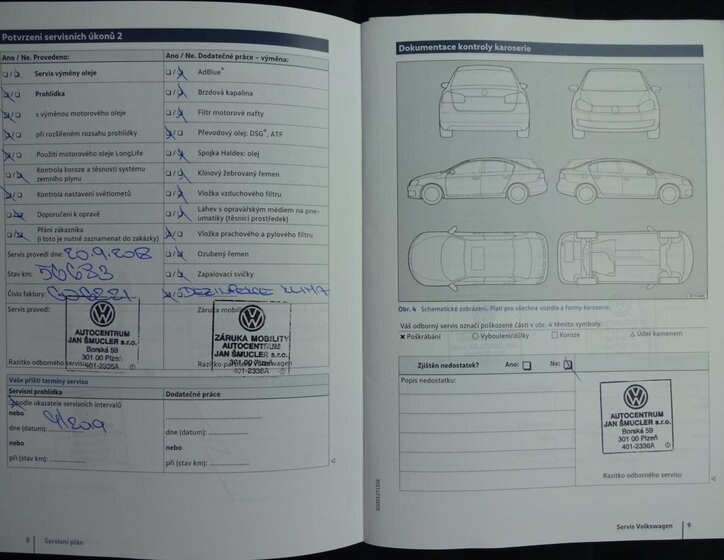 Potvrzení servisních úkonů 2
Ano / Ne. Provedeno:
Servis výměny oleje
Prohlídka
s výměnou motorového oleje
při rozšířeném rozsahu prohlídky
Použití motorového oleje LongLife
Kontrola koroze a těsnosti systému
zemního plynu
Kontrola nastavení světlometů
Doporučení k opravě
Přání zákazníka
(i toto je nutné zaznamenat do zakázky)
Servis provedl dne: 20.9.2018
Stav km: 56683
Číslo faktury:
Servis provedl:
AUTOCENTRUM
JAN ŠMUCLER s.r.o.
Borská 59
301 00 Plzeň
401-2336A
Razítko odborného servisu
Ano / Ne. Dodatečné práce – výměna:
AdBlue®
Brzdová kapalina
Filtr motorové nafty
Převodový olej: DSG®, ATF
Spojka Haldex: olej
Klínový žebrovaný řemen
Vložka vzduchového filtru
Láhev s opravářským médiem na pne-
umatiky (těsnicí prostředek)
Vložka prachového a pylového filtru
Ozubený řemen
Zapalovací svíčky
DEZINFEKCE KLIMA
Záruka mobility
ZÁRUKA MOBILITY
AUTOCENTRUM
JAN ŠMUCLER s.r.o.
301 00 Plzeň
401-2336A
Razítko partnera Volkswagen
Vaše příští termíny servisu
Servisní prohlídka
podle ukazatele servisních intervalů
nebo
dne (datum): 9/2019
nebo
při (stav km):
Dodatečné práce
dne (datum):
nebo
při (stav km):
8 Servisní plán
Dokumentace kontroly karoserie
Obr. 4 Schematické zobrazení. Platí pro všechna vozidla a formy karoserie.
Váš odborný servis označí poškozené části v obr. 4 těmito symboly:
✖ Poškrábání ○ Vybouleni/důlky □ Koroze △ Úder kamenem
Zjištěn nedostatek? Ano: Ne:
Popis nedostatku:
AUTOCENTRUM
JAN ŠMUCLER s.r.o.
Borská 59
301 00 Plzeň
401-2336A
Razítko odborného servisu
Servis Volkswagen 9